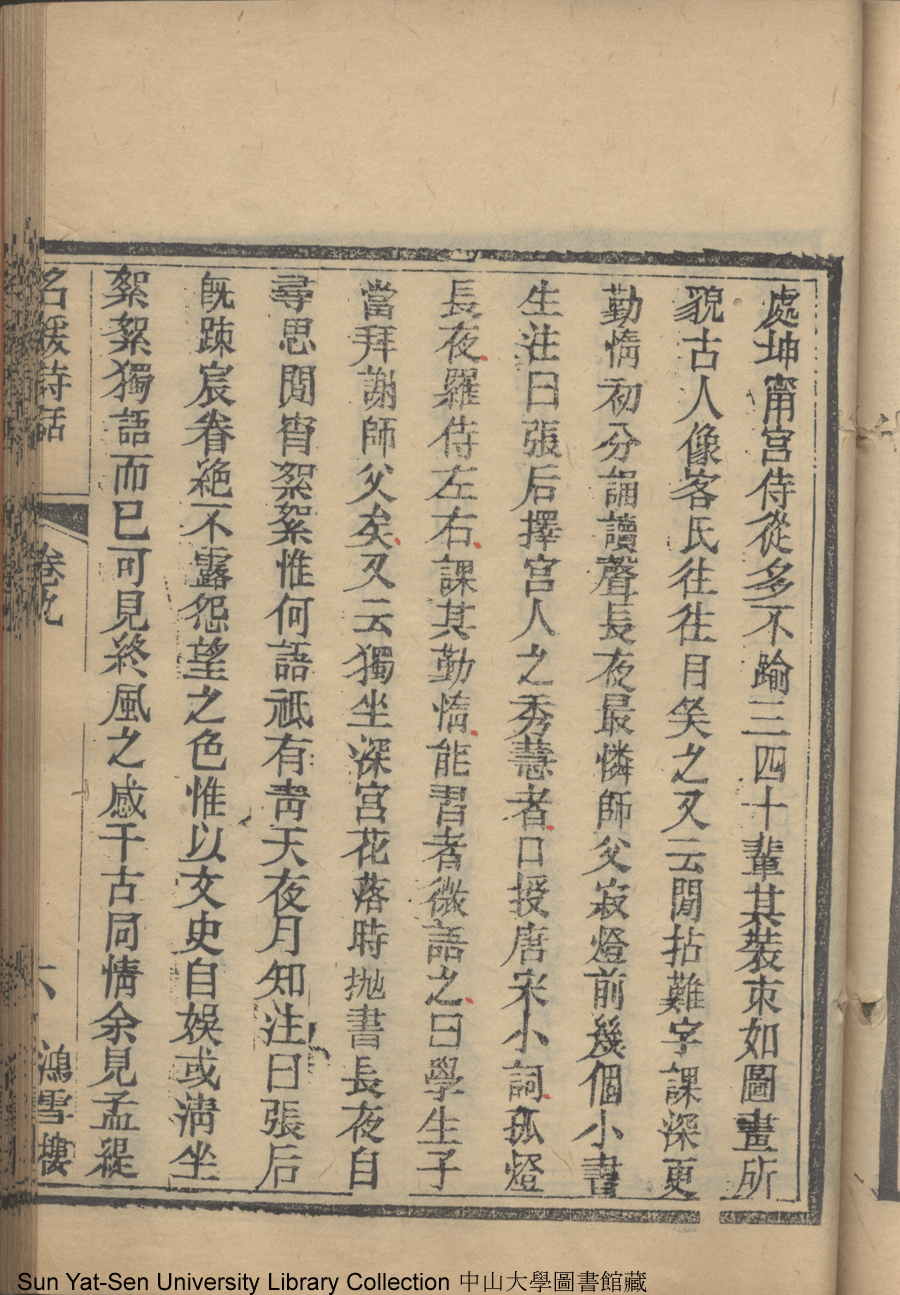 處坤甯宮侍從多不踰三四十輩其裝束如圖畫所
貌古人像客氏往往目笑之又云閒拈難字課深更
勤惰初分誦讀聲長夜最憐師父寂燈前幾個小書
生注曰張后擇宮人之秀慧者口授唐宋小詞孤燈
長夜羅侍左右課其勤惰能習者微語之曰學生子
當拜謝師父矣又云獨坐深宮花落時拋書長夜自
尋思閒宵絮絮惟何語祗有青天夜月知注曰張后
旣踈宸眷絶不露怨望之色惟以文史自娛或淸坐
絮絮獨語而已可見終風之感千古同情余見孟緹
名媛詩話 卷九 六 鴻雪樓
Sun Yat-Sen University Library Collection 中山大學圖書館藏